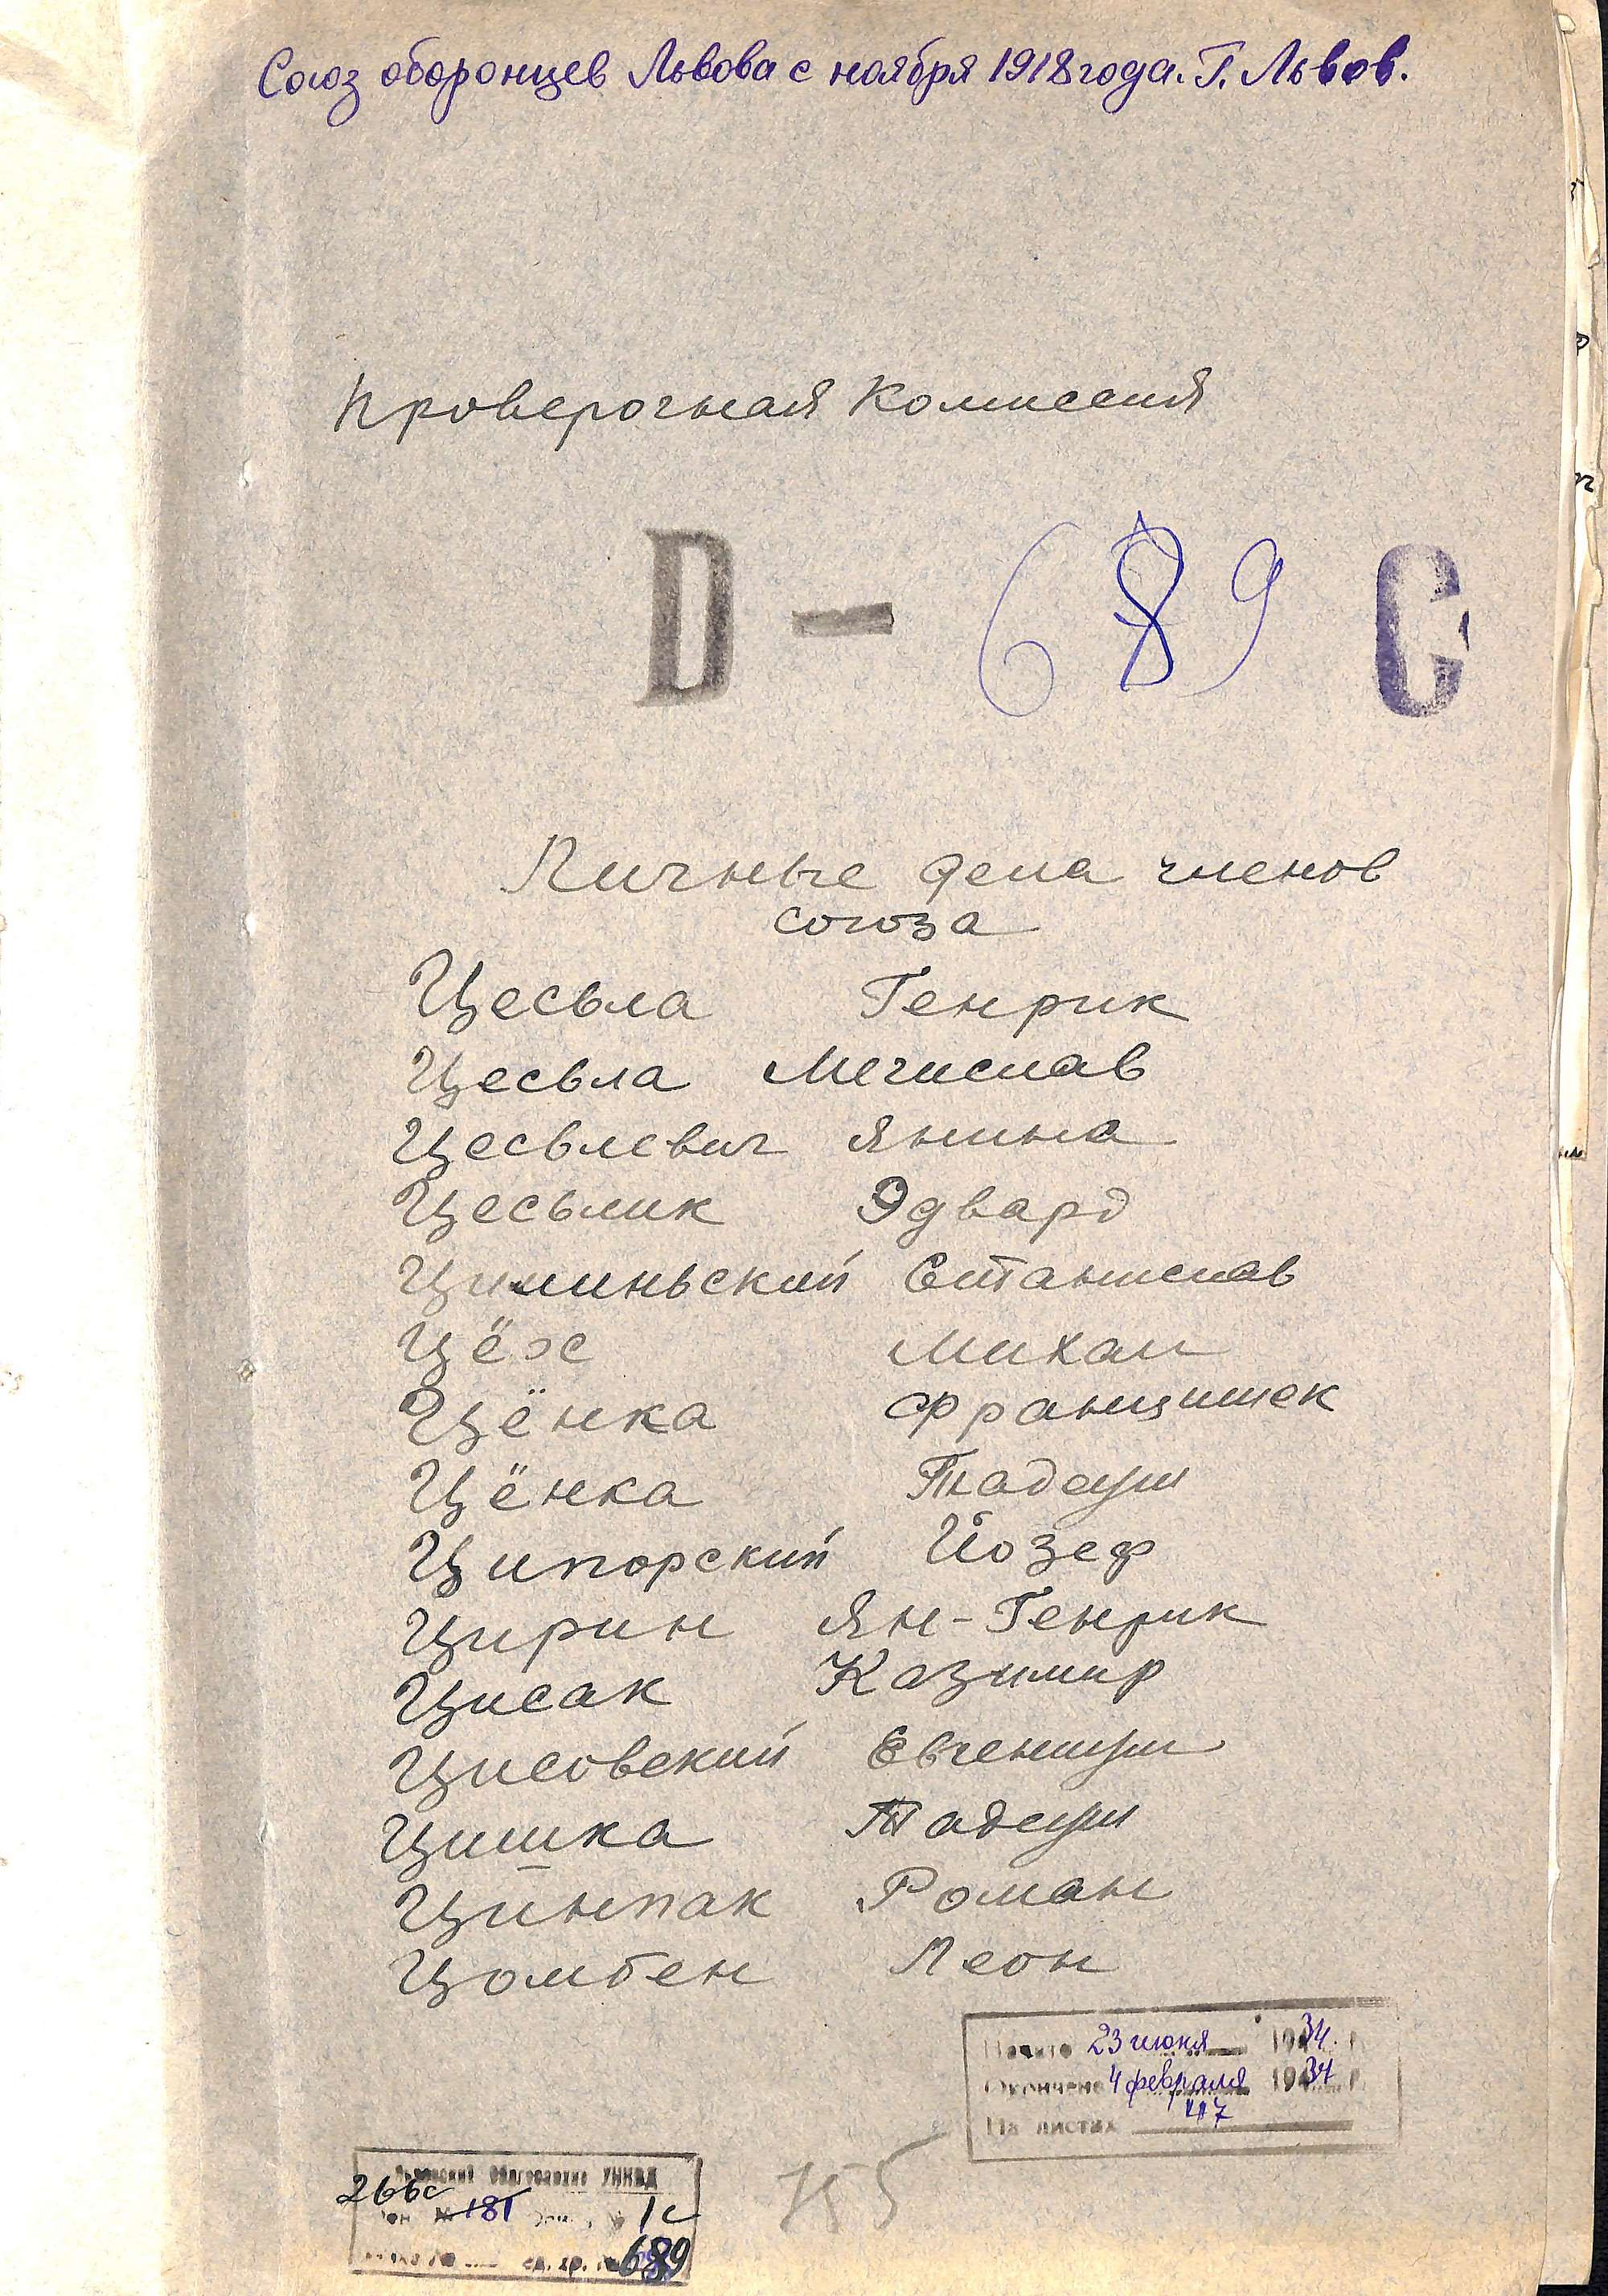 Союз оборонцев Львова с ноября 1918 года. Г. Львов.
Проверочная Комиссия
D — 689 С
Личные дела членов
союза
Цесьла Генрик
Цесьла Мечислав
Цесьлевич Янина
Цесьлик Эдвард
Циминьский Станислав
Цёх Михал
Цёнка Францишек
Цёнка Тадеуш
Ципорский Йозеф
Цирин Ян-Генрик
Цисак Казимир
Цисовский Евгениуш
Цишка Тадеуш
Цйнпак Роман
Цомбен Леон
Начато 23 июня 1934 г.
Окончено 4 февраля 1937 г.
На листах 117
Львовский Облгосархив УНКВД
266с
Фон № 181 1с
ед. хр. № 689
155